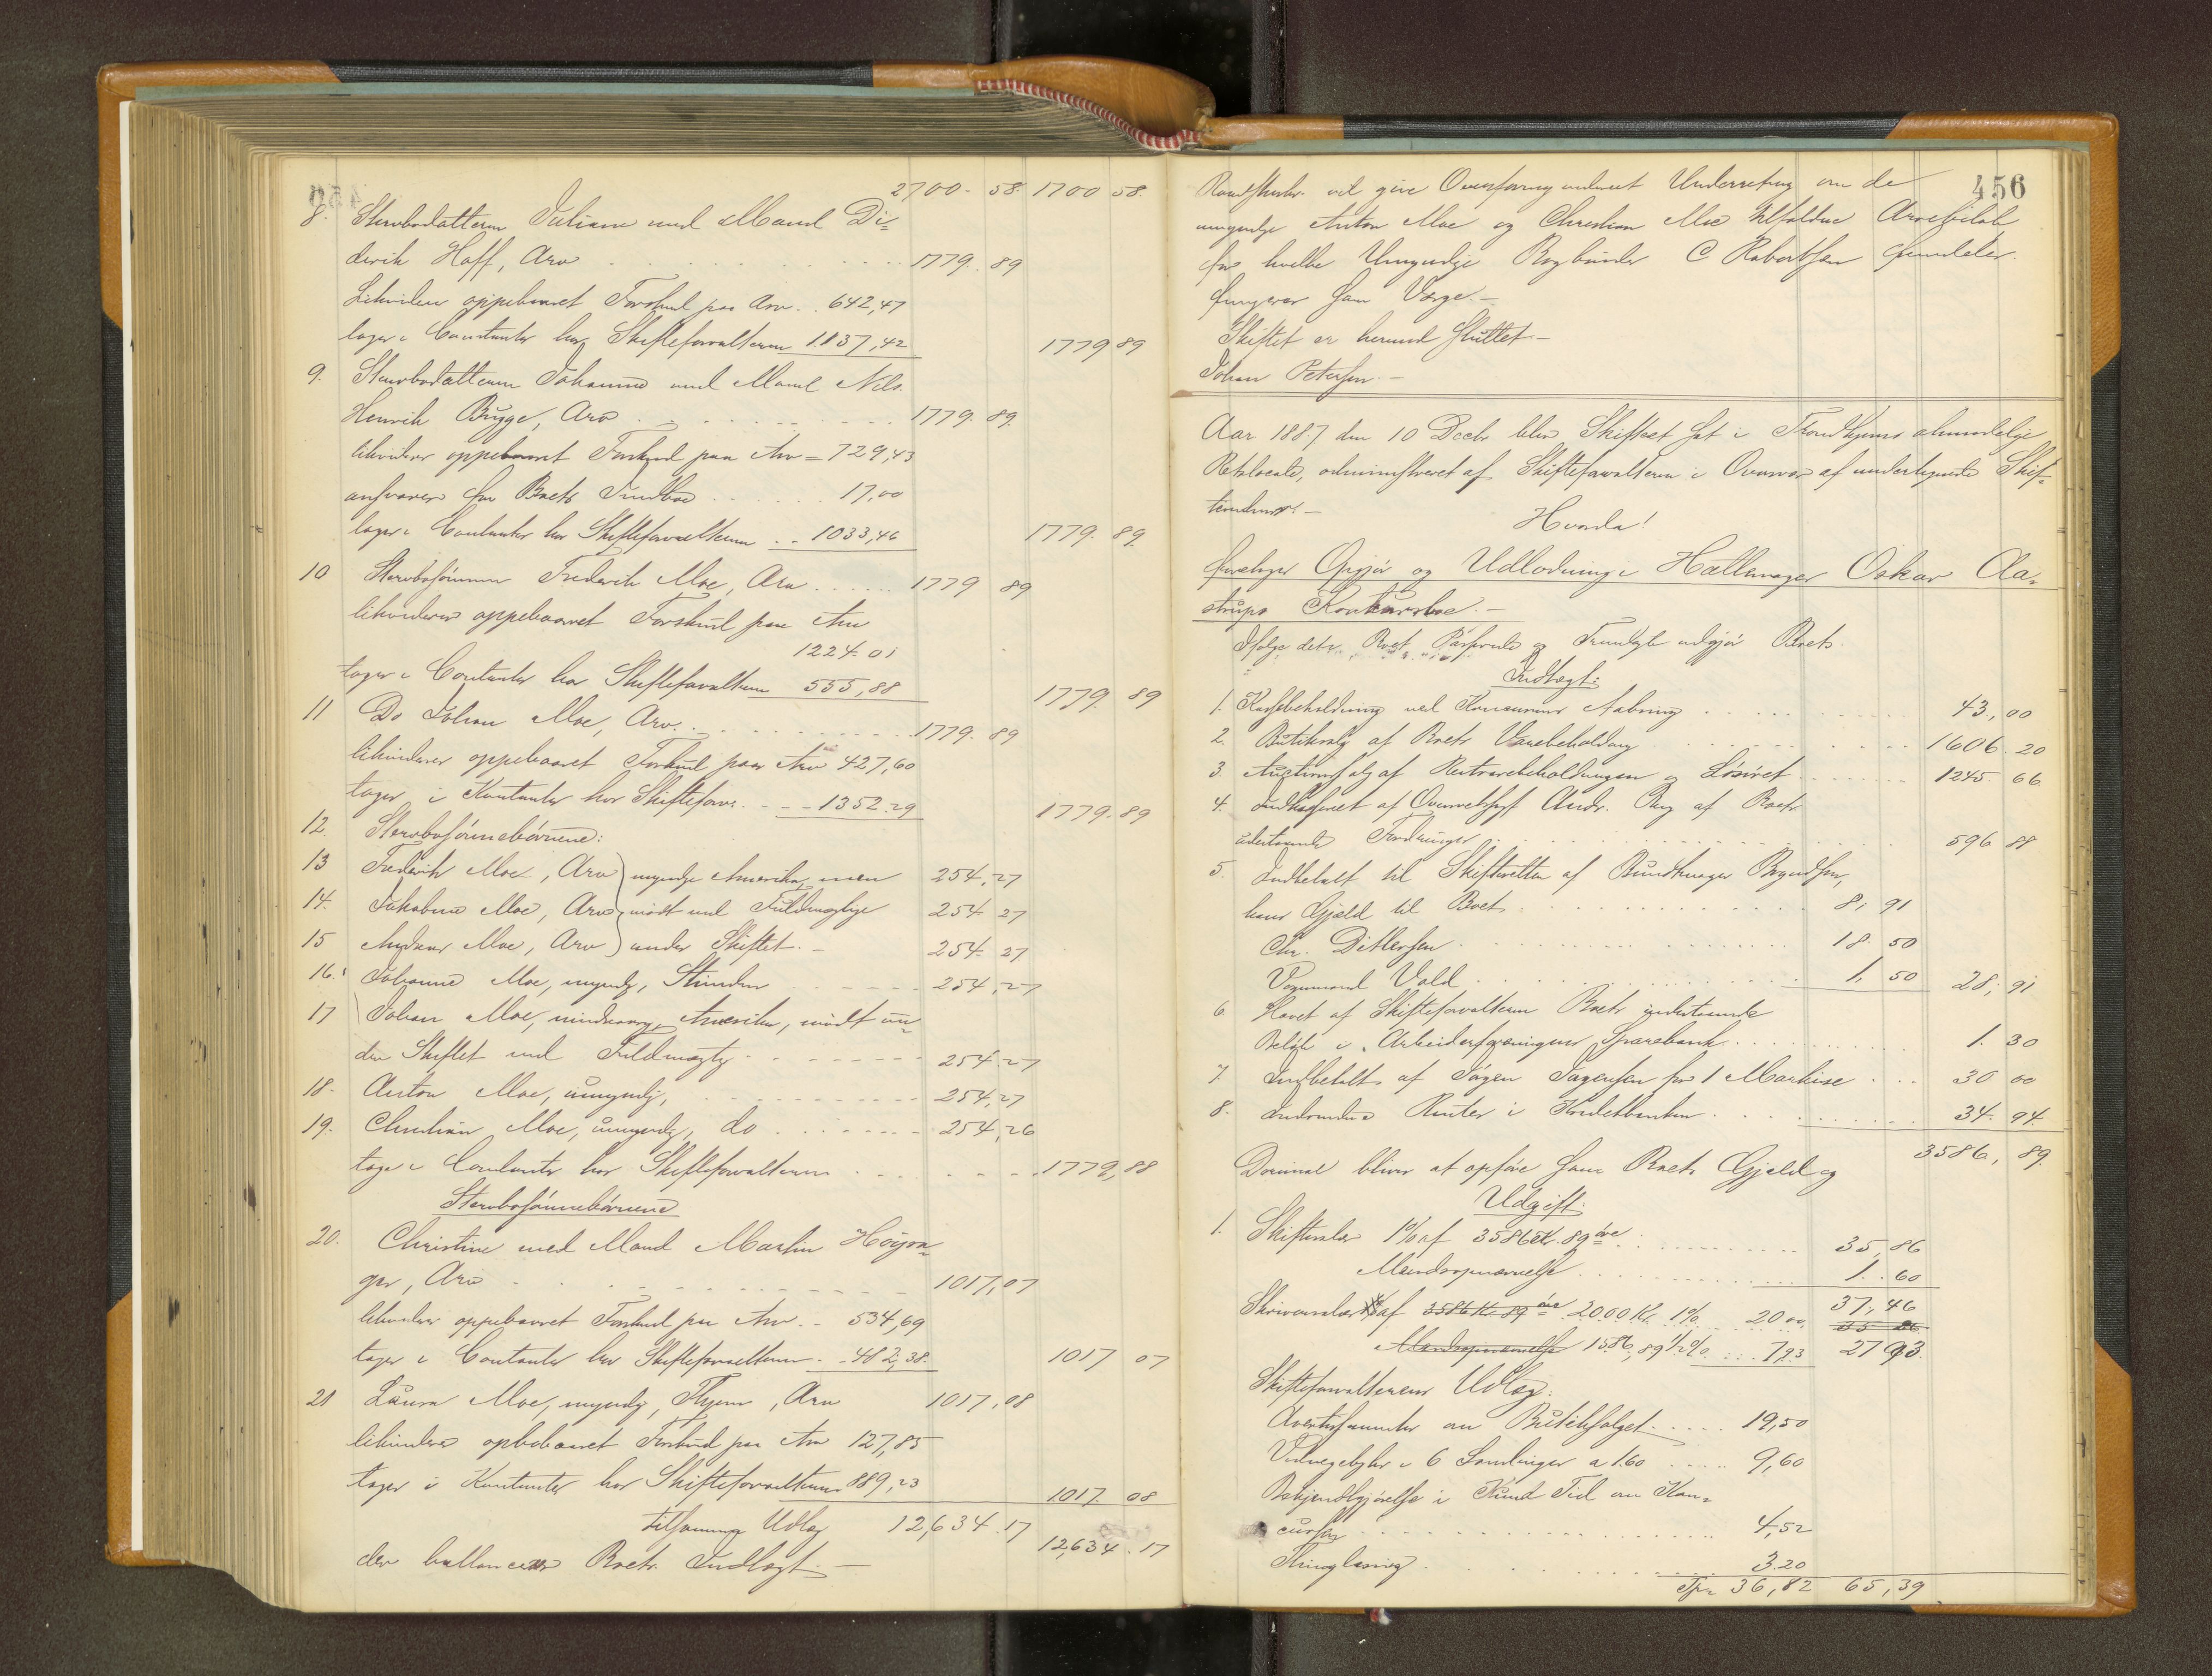 2700. 58. 1700 58.
8. Stervbodatteren Juliane med Mand Di=
derik Hoff, Arv 1779. 89
Likviderer oppebaaret Forskud paa Arv 642,47
tager i Contanter hos Skifteforvalteren 1137,42 1779 89
9. Stervbodatteren Johanne med Mand Nils
Henrik Bugge, Arv 1779. 89.
likviderer oppebaaret Forskud paa Arv = 729,43
ansvarer for Boets Indbo 17,00
tager i Contanter hos Skifteforvalteren 1033,46 1779. 89.
10 Stervbosönnen Frederik Moe, Arv 1779 89
likviderer oppebaaret Forskud paa Arv
1224. 01
tager i Contanter hos Skifteforvalteren 555,88 1779. 89
11 Do Johan Moe, Arv 1779. 89
likviderer oppebaaret Forskud paa Arv 427,60
tager i Kontanter hos Skifteforv. 1352.29 1779. 89
12. Stervbosönnebörnene:
13 Frederik Moe, Arv myndge Amerika, men 254,27
14. Jakobine Moe, Arv mödt ved Fuldmægtige 254 27
15 Moe, Arv under Skiftet. 254. 27
16. Johanne Moe, myndg, 254,27
17 Johan Moe, mindreaarg, Amerika, mödt un=
der Skiftet ved Fuldmægtg 254.27
18. Anton Moe, umyndg, 254,27
19. Christian Moe, umyndg, do 254,26
tage i Contanter hos Skifteforvalteren 1779,88
Stervbosönnebörnene
20. Christine med Mand Martin
ger, Arv 1017,07
likviderer oppebaaret Forskud paa Arv 534,69
tager i Contanter hos Skifteforvalteren 482,38. 1017 07
21 Laura Moe, myndg, Thjem, Arv 1017,08
likviderer opbebaaret Forskud paa Arv 127,85
tager i Kontanter hos Skifteforvalteren 889,23 1017. 08
tilsammen Udlæg 12,634.17 12,634.17
der ballancerer Boets Indtægt.
456
vil give Overformynderiet Underretning om de
umyndge Anton Moe og Christian Moe tilfaldne Arvebeløb
for hvilke Umyndige Bogbinder C Robertsen fremdeles
fungerer som Værge.
Skiftet er hermed sluttet
Johan Petersen.
Aar 1887 den 10 Decbr blev Skifteret sat i Trondhjems almindelige
Retslocale, administreret af Skifteforvalteren i Overvær af undertegnede Skif=
tevidner.
Hvorda!
foretoges Opgjör og Udlodning i Oskar Aa=
strups Konkursbo.
Ifølge det udgjör Boets
Indtægt:
1. Kassebeholdning ved Concursens Aabning 43,00
2. Butiksalg af Boets Varebeholdning 1606. 20
3. Auctionssalg af Restvarebeholdningen og Lösöret 1245. 66
4. Indkasseret af Overretssagf. Andr. Bug af Boets
udestaaende Fordringer 596 88
5. Indbetalt til Skifteretten af Buntmager
hans Gjæld til Boet 8, 91
Chr. Ditlefsen 18. 50
Vognmand Vold 1, 50 28, 91
6. Hævet af Skifteforvalteren Boets indestaaende
Beløb i Arbeiderforeningens Sparebank 1. 30
7. Indbetalt af Jörgen for 1 Markise 30 00
8. Indvundne Renter i Kreditbanken 34. 94.
3586, 89.
Derimod bliver at opføre som Boets Gjæld og
Udgift.
1. Skifteslør 1% af 3586 Kr. 89 öre 35,86
Mændsopnævnelse 1. 60
37,46
Skriversalær af 3586 Kr 89 öre 2000 Kr. 1% 20 00 35 86
Mændsopnævnelse 1586,89 1/2% 7.93 27 93
Skifteforvalterens Udlæg:
Avertissementer om Butiksalget 19,50
i 6 Samlinger a 1.60 9,60
Bekjendtgjörelse i Kund Tid om Kon=
curs 4,52
Thinglæsning 3.20
Tpr 36,82 65,39